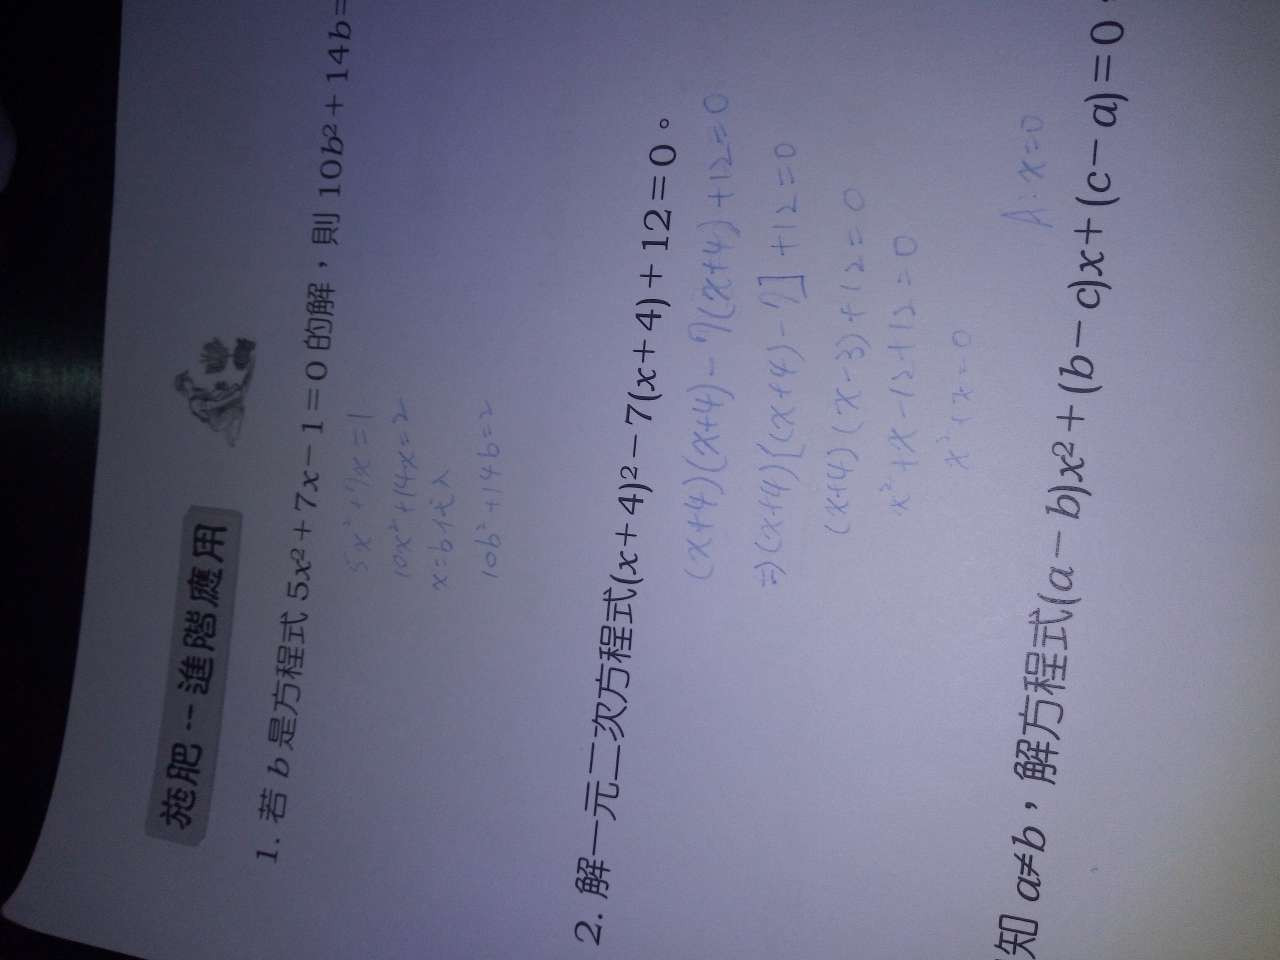 施肥--進階應用
1. 若 b 是方程式 5x²+7x−1=0 的解，則 10b²+14b=
5x²+7x=1
10x²+14x=2
x=b代入
10b²+14b=2
2. 解一元二次方程式(x+4)²−7(x+4)+12=0。
(x+4)(x+4)−7(x+4)+12=0
⇒(x+4)[(x+4)−7]+12=0
(x+4)(x−3)+12=0
x²+x−12+12=0
x²+x=0
A:x=0
知 a≠b，解方程式(a−b)x²+(b−c)x+(c−a)=0